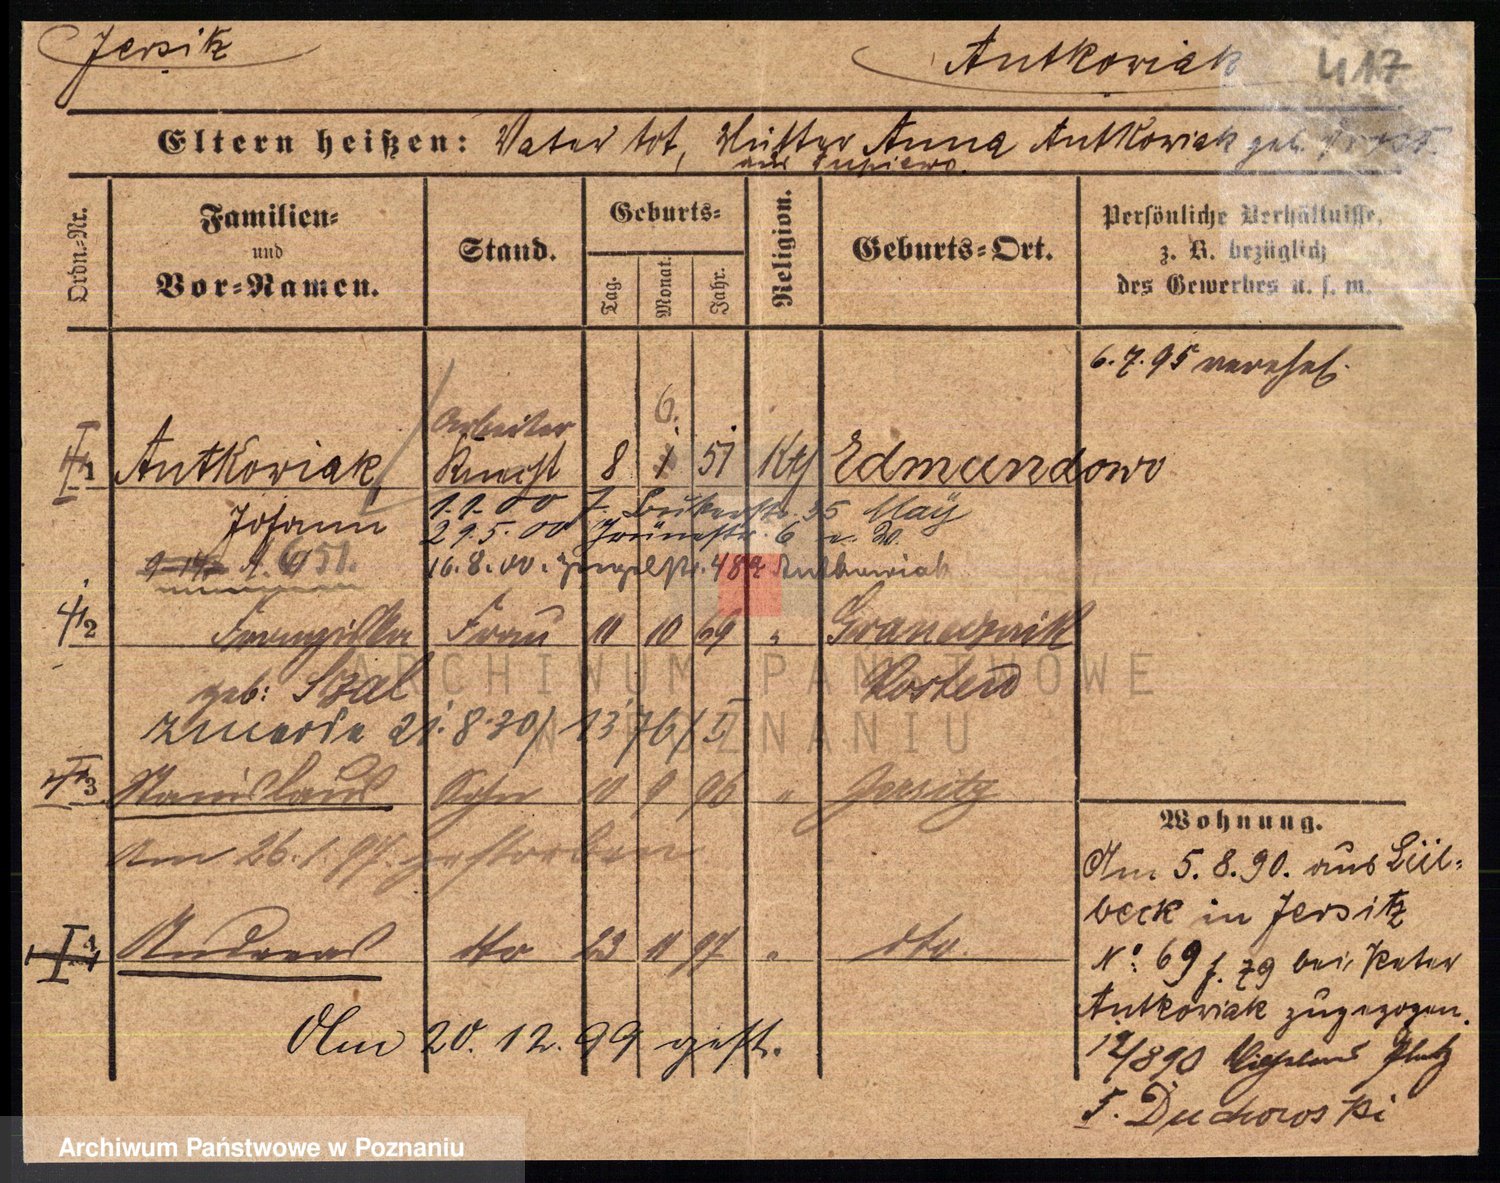 Jersitz
Antkowiak 417
Eltern heißen: Vater tot, Mutter Anna Antkowiak geb.
aus
Ordn.=Nr.
Familien=
und
Vor=Namen.
Stand.
Geburts=
Tag.
Monat.
Jahr.
Religion.
Geburts=Ort.
Persönliche Verhältnisse,
z. B. bezüglich
des Gewerbes u. s. w.
6.7.95 verehel.
Arbeiter 6.
1 Antkowiak, Knecht 8 1 51 Kth Edmundowo
Johann 1.1.00 35 May
6 51. 29.5.00 Grünestr. 6
16.8.00. 48 Antkowiak
2 Franziska Frau 11 10 69 "
geb: Szal Kosten
zmarła 21.8.30/1376/I
3 Stanislaus Sohn 10 9 96 " Jersitz
Am 26.1.97. gestorben
Andreas dto 23 11 97 " dto.
Am 20.12.99 gest.
Wohnung.
Am 5.8.90. aus Lül-
beck in Jersitz
No: 69 f. 79 bei Peter
Antkowiak zugezogen.
12/8 90
F. Duchowski
ARCHIWUM PAŃSTWOWE
W POZNANIU
Archiwum Państwowe w Poznaniu